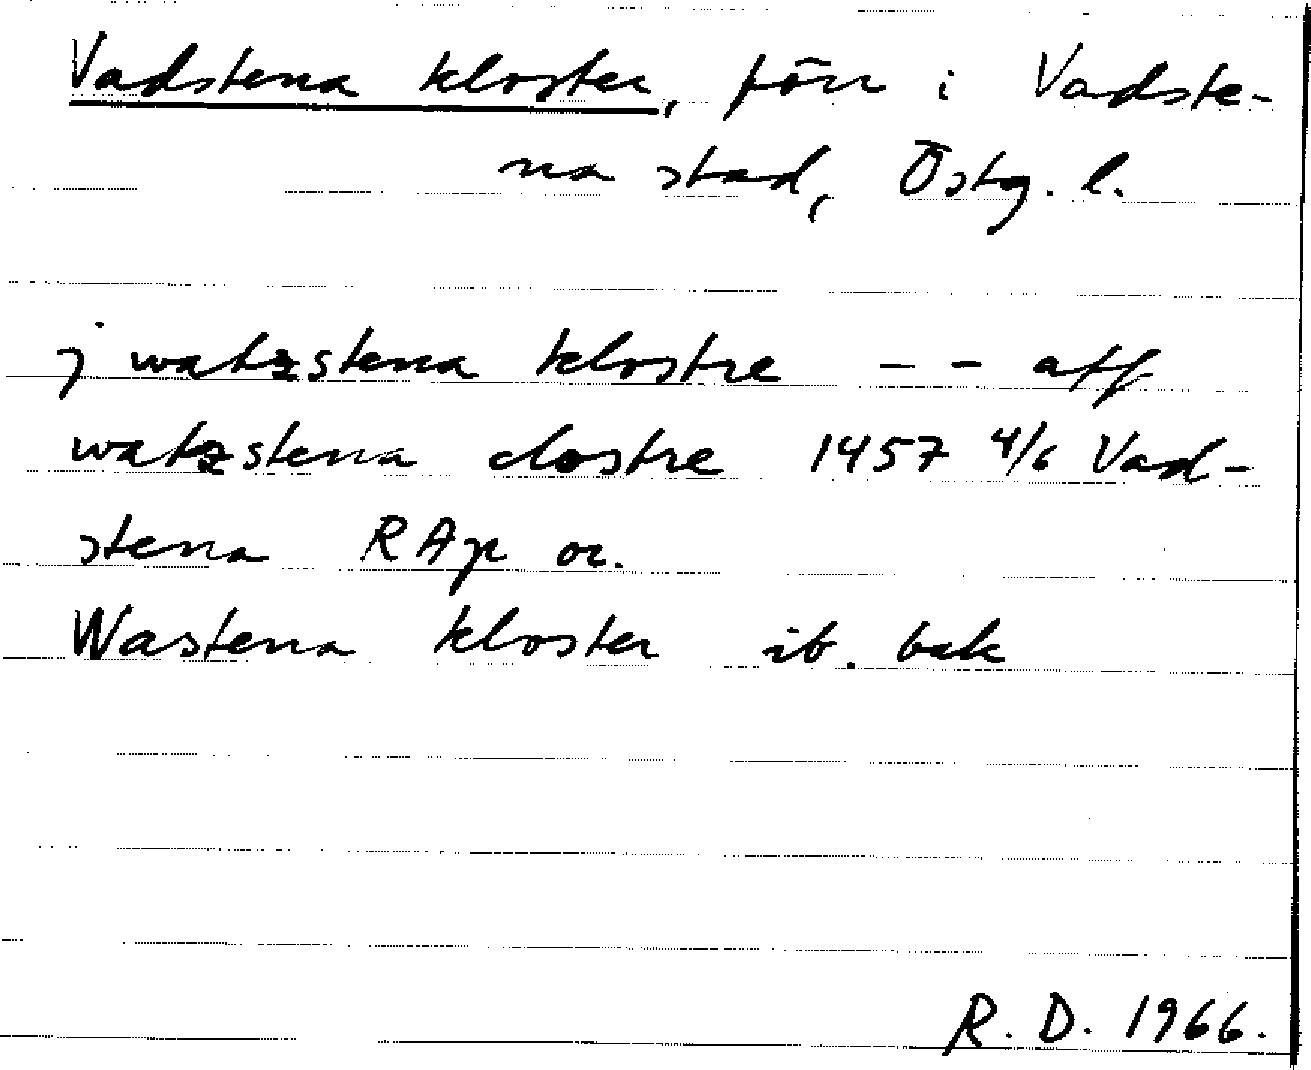 Vadstena kloster, förr i Vadste-
na stad, Östg. l.
j watzstena klostre - - aff
watzstena clostre 1457 4/6 Vad-
stena RAp or.
Wastena kloster ib. bak
R. D. 1966.